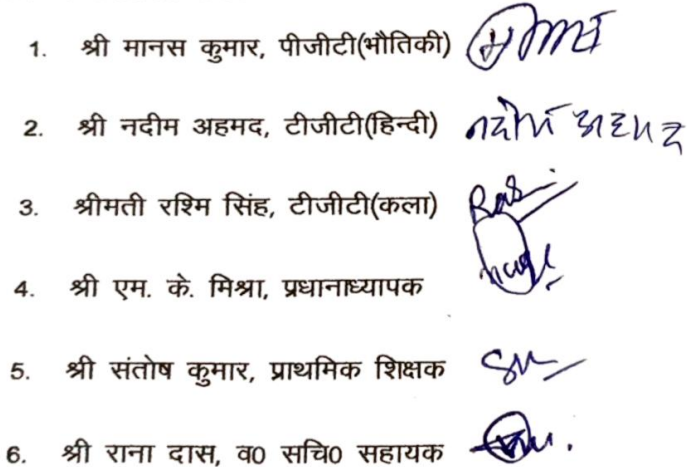 1. श्री मानस कुमार, पीजीटी(भौतिकी)
2. श्री नदीम अहमद, टीजीटी(हिन्दी) नदीम अहमद
3. श्रीमती रश्मि सिंह, टीजीटी(कला)
4. श्री एम. के. मिश्रा, प्रधानाध्यापक
5. श्री संतोष कुमार, प्राथमिक शिक्षक
6. श्री राना दास, व0 सचि0 सहायक